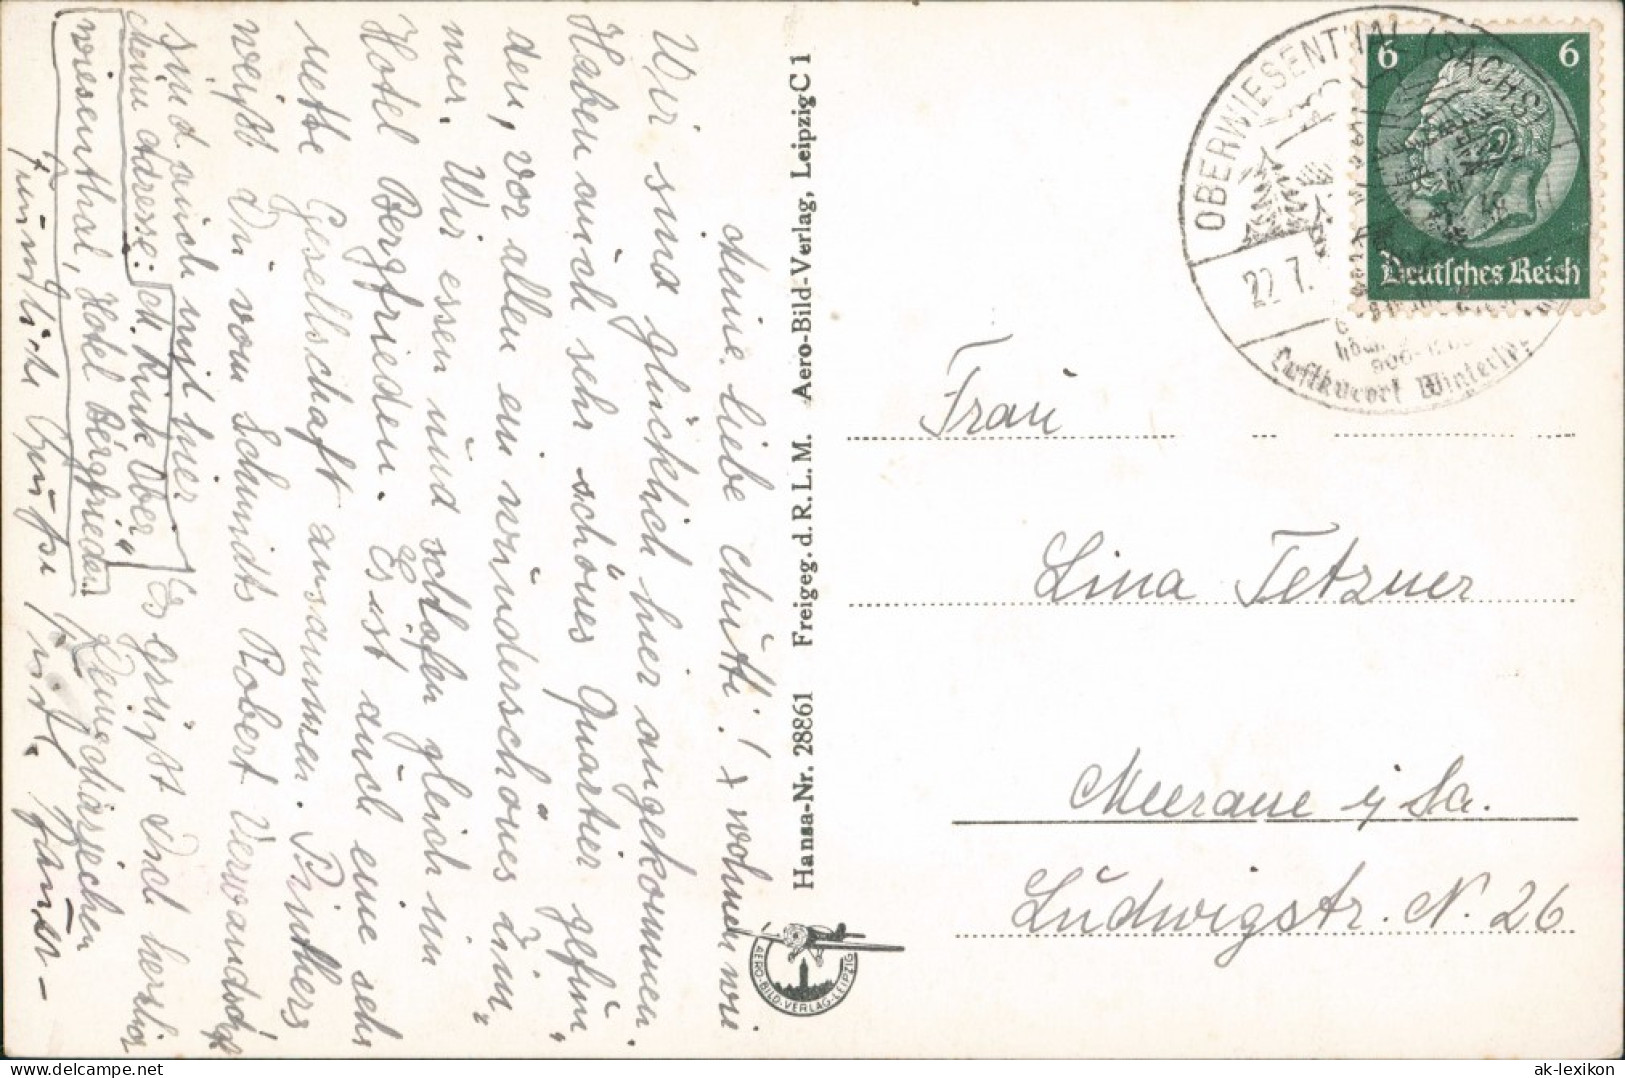 Meine liebe Mutti! + wohnen wir
Wir sind glücklich hier angekommen.
Haben auch sehr schönes Quartier gefun-
den, vor allen ein wunderschönes Zim-
mer. Wir essen und schlafen gleich im
Hotel Bergfrieden. Es ist auch eine sehr
nette Gesellschaft zusammen.
weißt Du vom Schmidts Robert Verwandsch.
sind auch mit hier. Es grüßt Dich herzlich
Meine Adresse: M. Rink Ober
wiesenthal, Hotel Bergfrieden Deine
Grüße
Hansa-Nr. 28861 Freigeg. d. R. L. M. Aero-Bild-Verlag, Leipzig C 1
AERO-BILD-VERLAG-LEIPZIG
OBERWIESENTHAL (SACHS)
22.7.
900-12
Luftkurort Winter
6 6
Deutsches Reich
Frau
Lina Tetzner
Meerane i/Sa.
Ludwigstr. N. 26
ak-lexikon